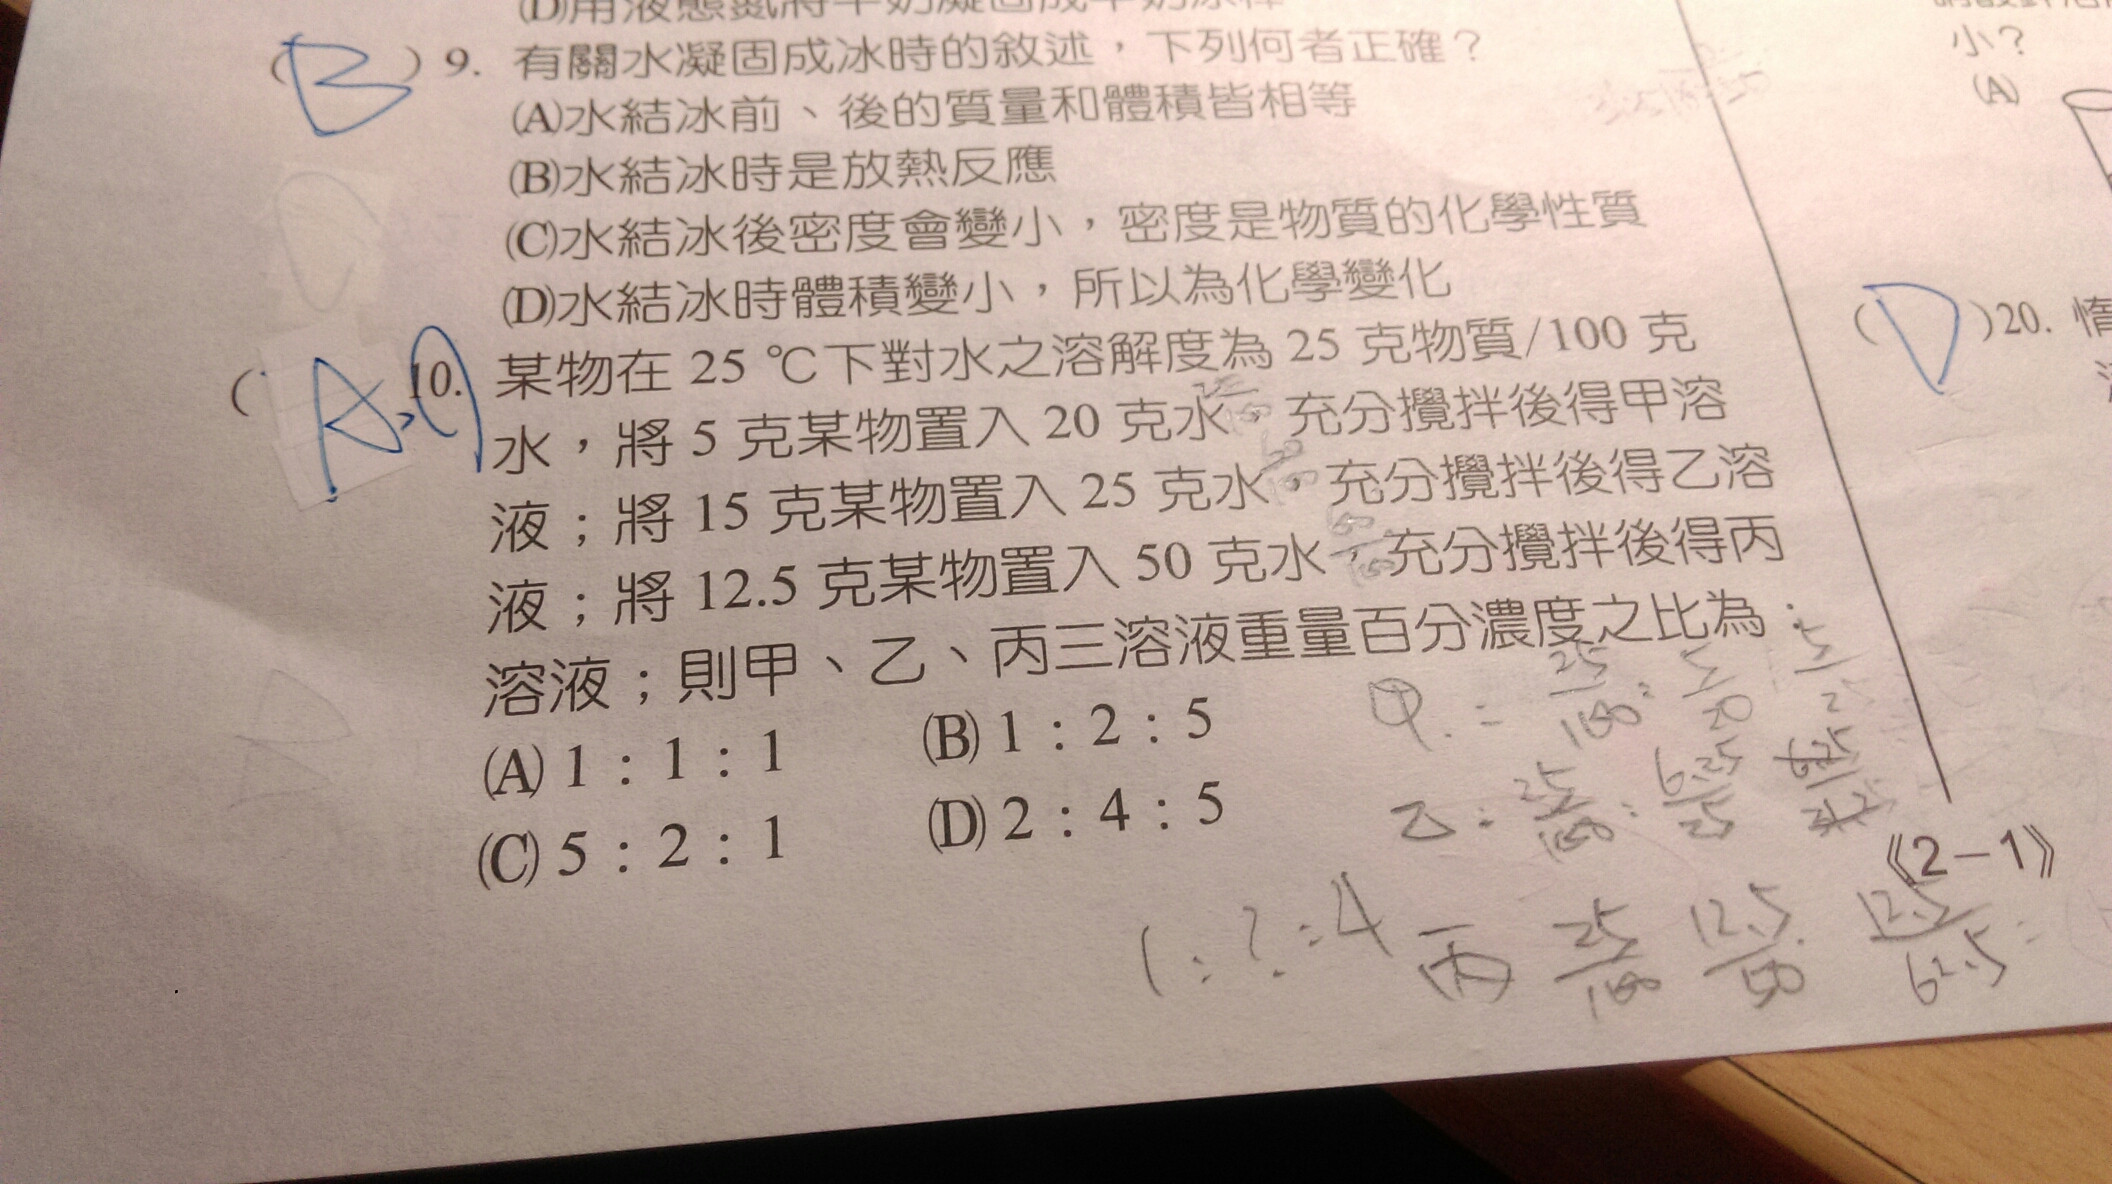 (D)用液態氮將牛奶凝固成牛奶冰棒
(B)9. 有關水凝固成冰時的敘述，下列何者正確？
(A)水結冰前、後的質量和體積皆相等
(B)水結冰時是放熱反應
(C)水結冰後密度會變小，密度是物質的化學性質
(D)水結冰時體積變小，所以為化學變化
(A,C)10. 某物在 25 ℃下對水之溶解度為 25 克物質/100 克
水，將 5 克某物置入 20 克水，充分攪拌後得甲溶
液；將 15 克某物置入 25 克水，充分攪拌後得乙溶
液；將 12.5 克某物置入 50 克水，充分攪拌後得丙
溶液；則甲、乙、丙三溶液重量百分濃度之比為：
(A) 1：1：1 (B) 1：2：5
(C) 5：2：1 (D) 2：4：5
甲：25/100 = 5/20 5/25
乙：25/100：6.25/25
1：?：4
丙 25/100 12.5/50 12.5/62.5
小？
(A)
(D)20. 惰
《2－1》